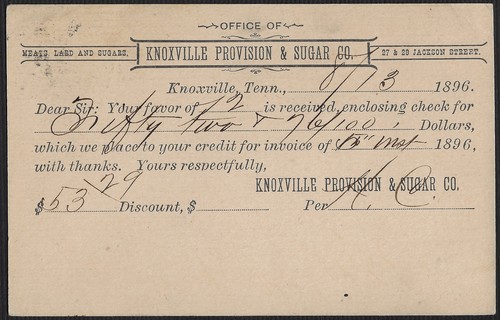 OFFICE OF
MEATS, LARD AND SUGARS. KNOXVILLE PROVISION & SUGAR CO. 27 & 28 JACKSON STREET.
Knoxville, Tenn., 8/13 1896.
Dear Sir: Your favor of 12 is received, enclosing check for
Fifty two & 76/100 Dollars,
which we place to your credit for invoice of inst 1896,
with thanks. Yours respectfully,
KNOXVILLE PROVISION & SUGAR CO.
$53 29 Discount, $ Per H. C.